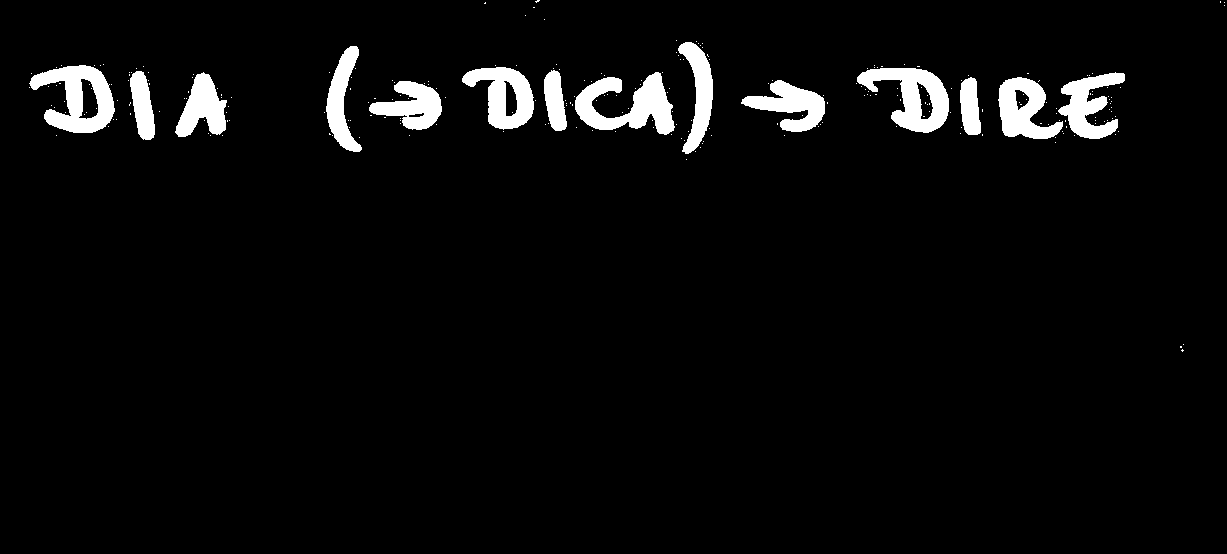 DIA (→ DICA) → DIRE